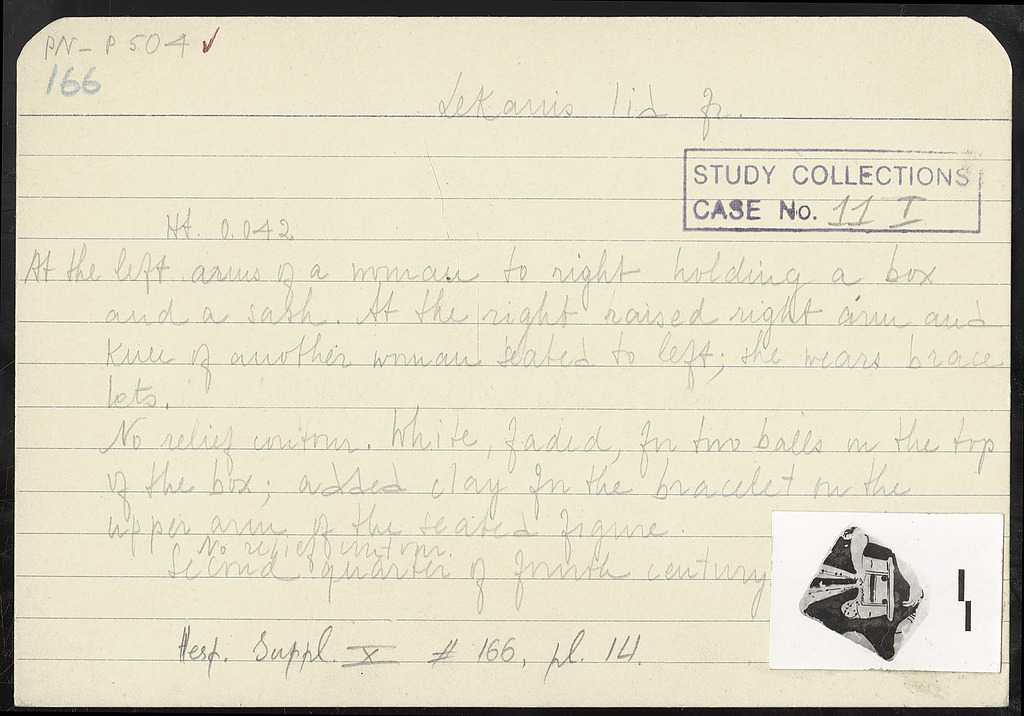 PN- P 504 ✓
166
Lekanis lid fr.
STUDY COLLECTIONS
CASE No. 11 I
Ht. 0.042
At the left arms of a woman to right holding a box
and a sash. At the right raised right arm and
knee of another woman seated to left; she wears brace
lets.
No relief contour. White, faded, for two balls on the top
of the box; added clay for the bracelet on the
upper arm of the seated figure.
No relief contour.
Second quarter of fourth century
Hesp. Suppl. X # 166, pl. 14.